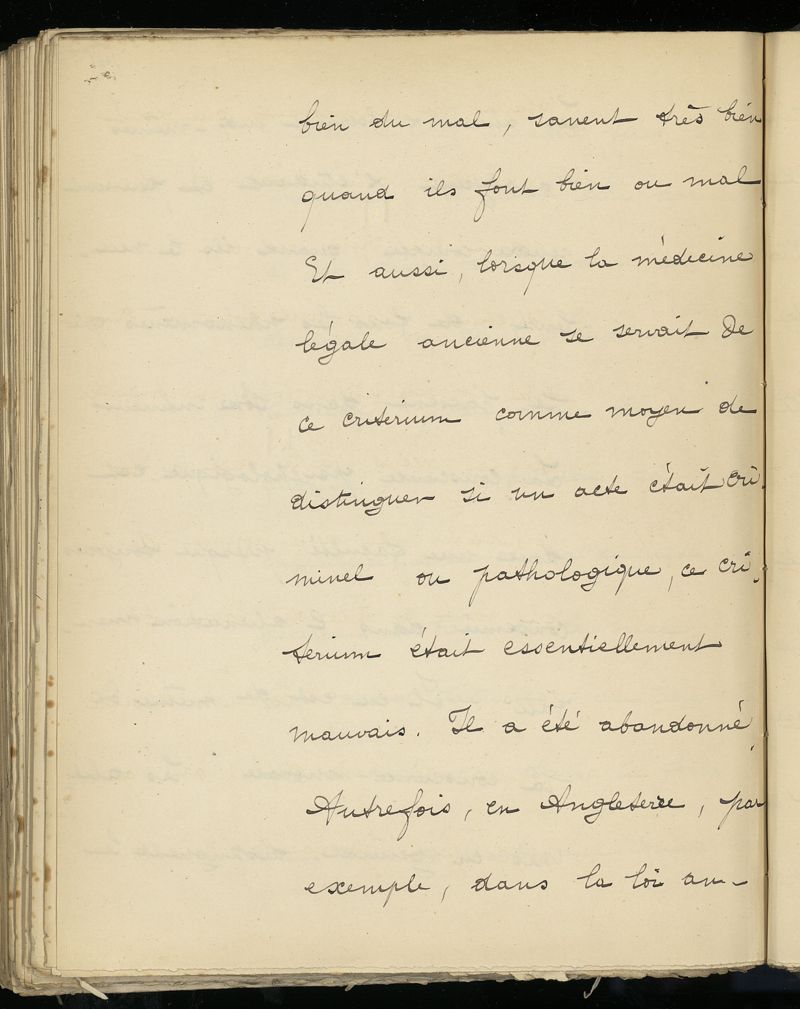 bien du mal, savent très bien
quand ils font bien ou mal
Et aussi, lorsque la médecine
légale ancienne se servait de
ce criterium comme moyen de
distinguer si un acte était cri-
minel ou pathologique, ce cri-
terium était essentiellement
mauvais. Il a été abandonné.
Autrefois, en Angleterre, par
exemple, dans la loi an-